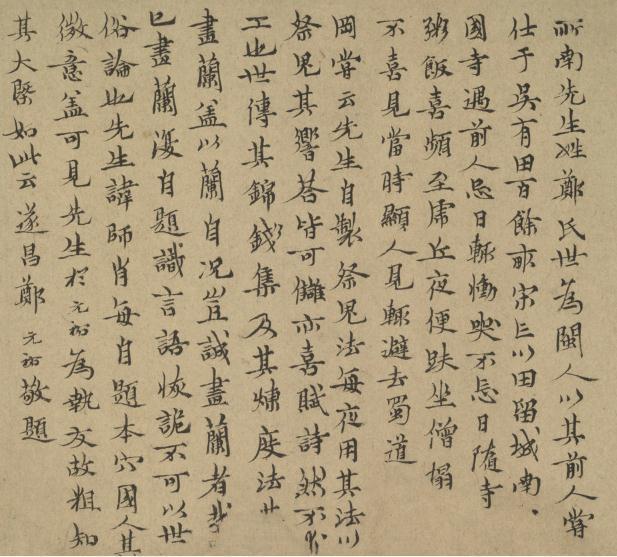 所南先生姓鄭氏世為閩人以其前人嘗
仕于吳有田百餘畝宋亡以田留城南、
國寺遇前人忌日輒慟哭不忌日隨寺
粥飯喜頻至虎丘夜便趺坐僧榻
不喜見當時顯人見輒避去蜀道
岡嘗云先生自製祭鬼法每夜用其法以
祭鬼其響荅皆可讎亦喜賦詩然不求
工也世傳其錦錢集及其煉度法廿
畫蘭盖以蘭自况豈誠畫蘭者哉
已畫蘭復自題識言語恢詭不可以世
俗論也先生諱師肖每自題本穴國人其
微意盖可見先生於元祐為執友故粗知
其大槩如此云遂昌鄭元祐敬題